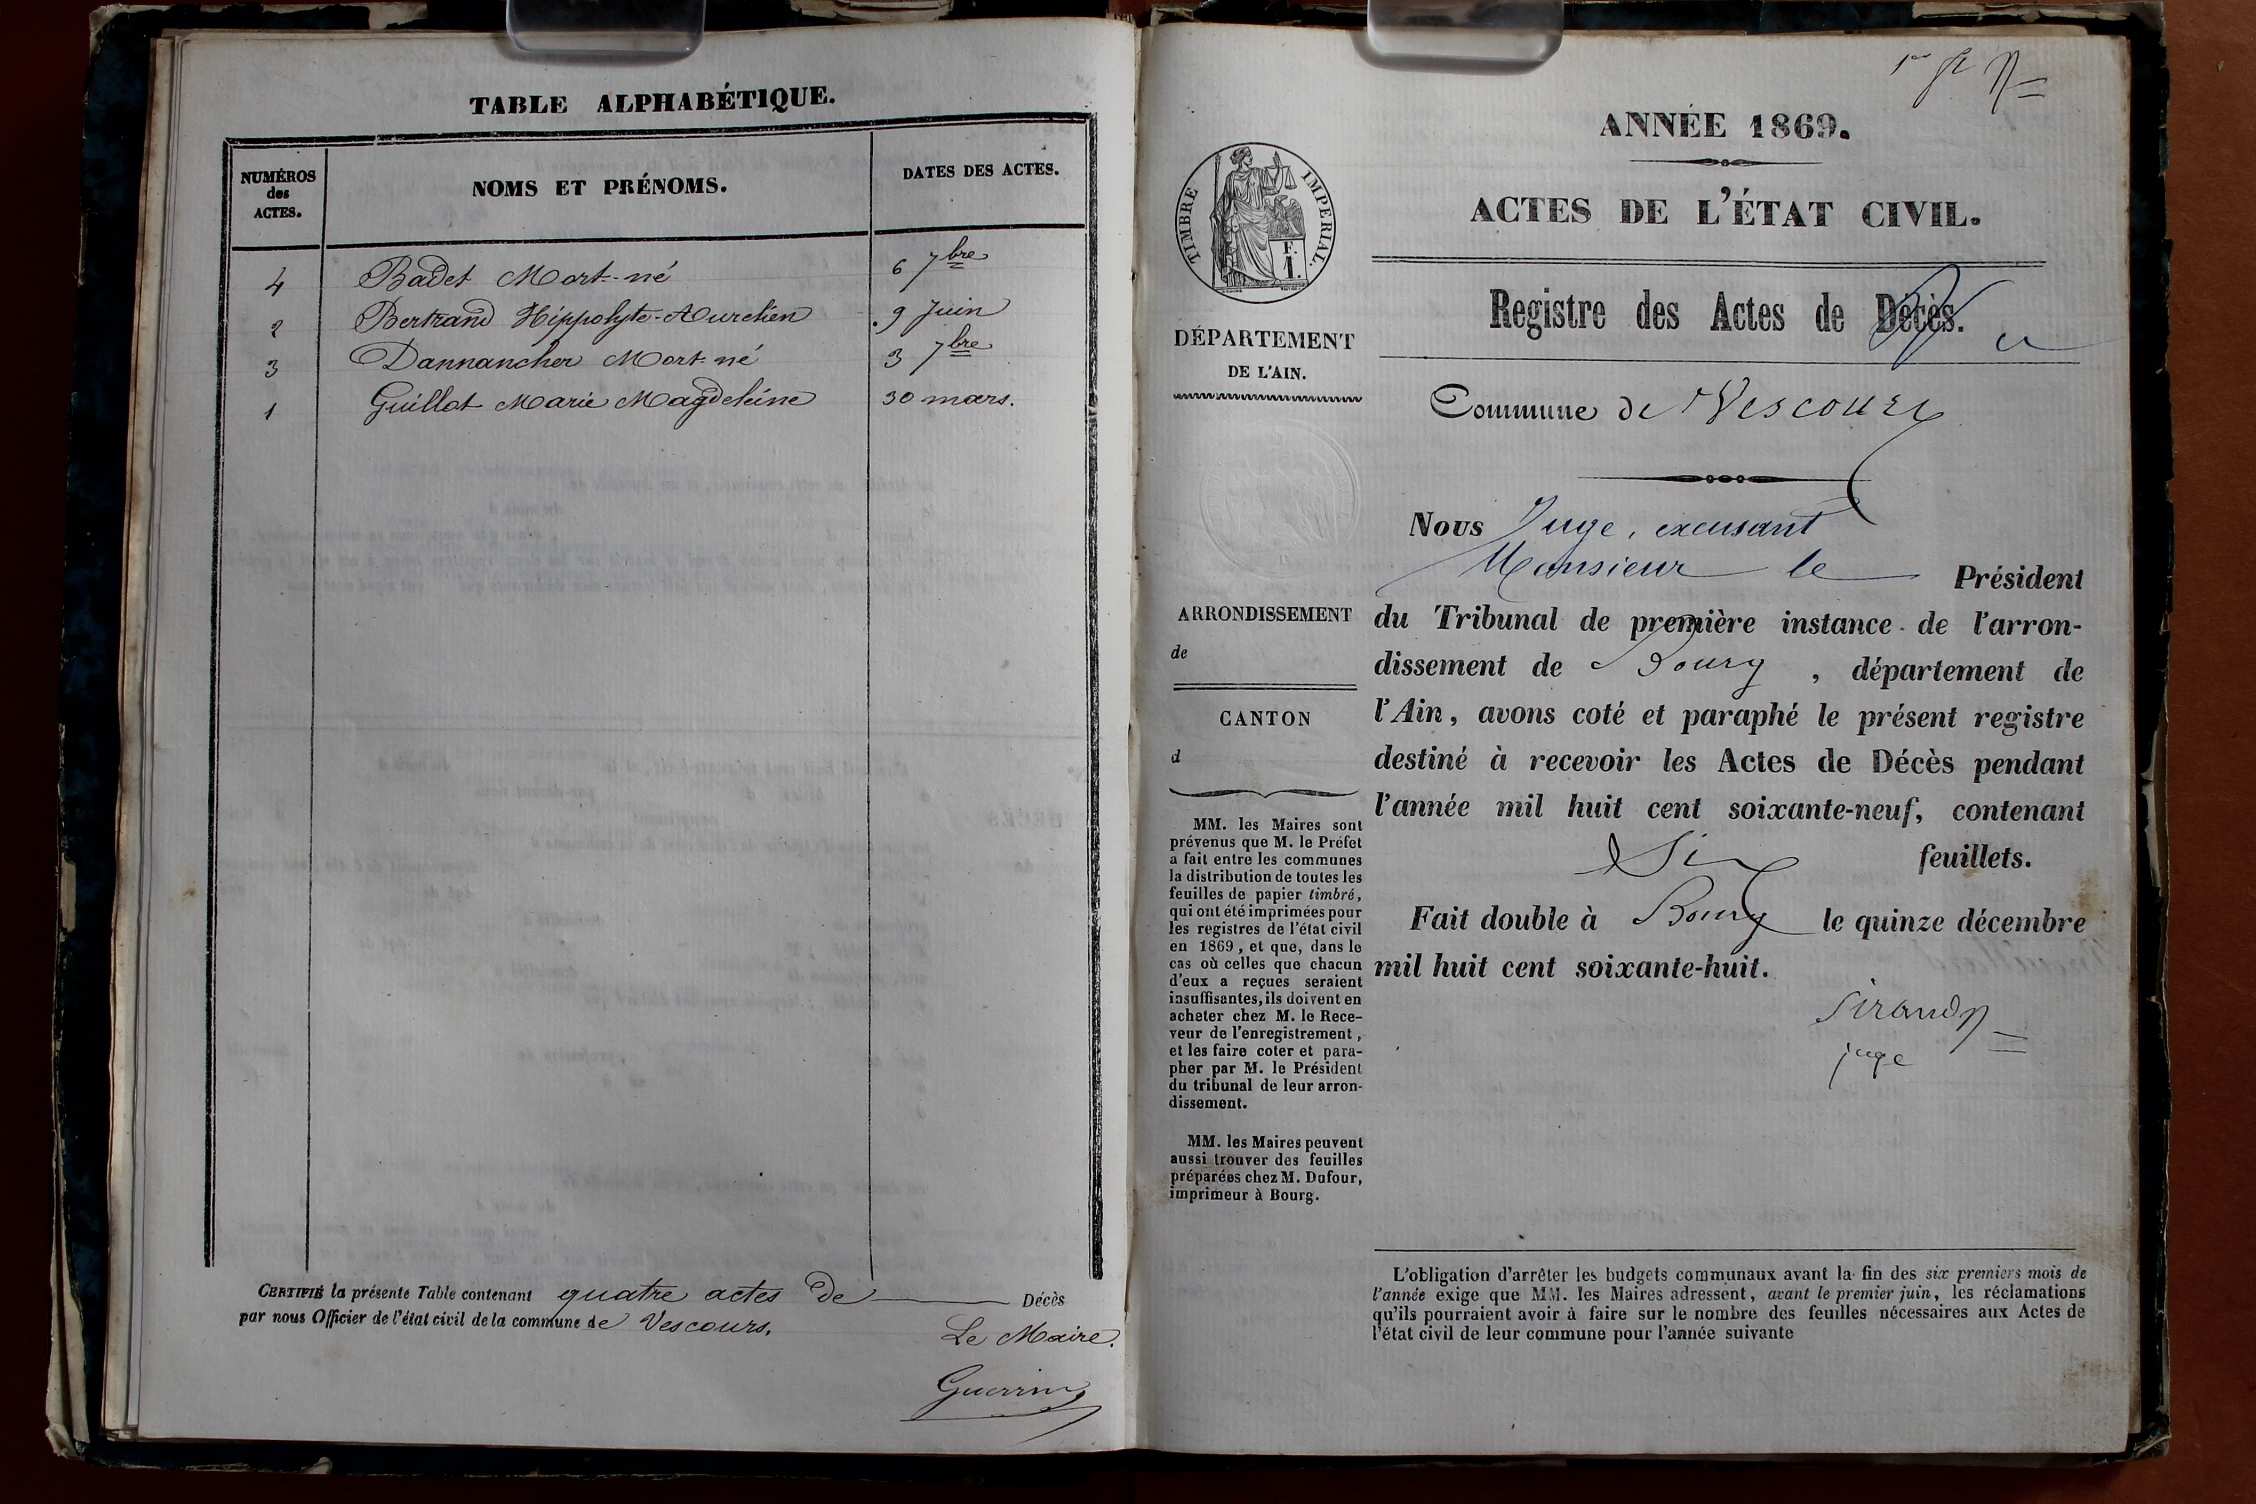 TABLE ALPHABÉTIQUE.
NUMÉROS
des
ACTES.
NOMS ET PRÉNOMS.
DATES DES ACTES.
4 Badet Mort-né 6 7bre
2 Bertrand Hippolyte-Aurélien 9 Juin
3 Dannancher Mort né 3 7bre
1 Guillot Marie Magdeleine 30 mars.
CERTIFIÉ la présente Table contenant quatre actes de Décès
par nous Officier de l'état civil de la commune de Vescours.
Le Maire.
Guerrin
1er ft
ANNÉE 1869.
ACTES DE L'ÉTAT CIVIL.
TIMBRE IMPERIAL.
F.
1.
Registre des Actes de Décès.
DÉPARTEMENT
DE L'AIN.
Commune de Vescours
Nous Juge, excusant
Monsieur le Président
ARRONDISSEMENT
de
CANTON
d
du Tribunal de première instance de l'arron-
dissement de Bourg, département de
l'Ain, avons coté et paraphé le présent registre
destiné à recevoir les Actes de Décès pendant
l'année mil huit cent soixante-neuf, contenant
Six feuillets.
Fait double à Bourg le quinze décembre
mil huit cent soixante-huit.
Sirand
juge
MM. les Maires sont
prévenus que M. le Préfet
a fait entre les communes
la distribution de toutes les
feuilles de papier timbré,
qui ont été imprimées pour
les registres de l'état civil
en 1869, et que, dans le
cas où celles que chacun
d'eux a reçues seraient
insuffisantes, ils doivent en
acheter chez M. le Rece-
veur de l'enregistrement,
et les faire coter et para-
pher par M. le Président
du tribunal de leur arron-
dissement.
MM. les Maires peuvent
aussi trouver des feuilles
préparées chez M. Dufour,
imprimeur à Bourg.
L'obligation d'arrêter les budgets communaux avant la fin des six premiers mois de
l'année exige que MM. les Maires adressent, avant le premier juin, les réclamations
qu'ils pourraient avoir à faire sur le nombre des feuilles nécessaires aux Actes de
l'état civil de leur commune pour l'année suivante